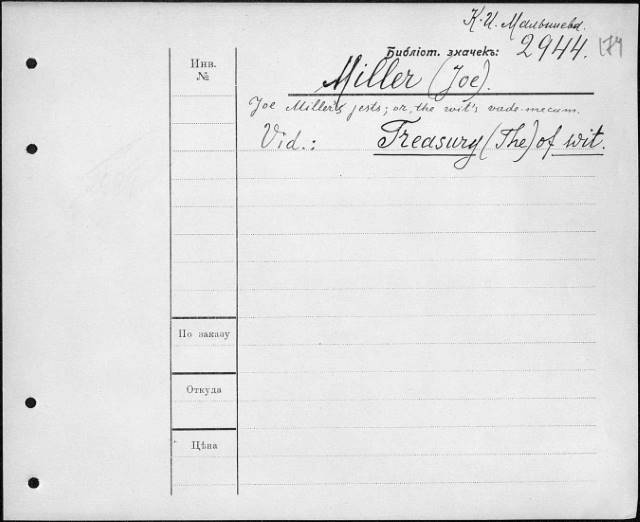 К. И. Малышева.
Библіот. значекъ: 2944. 174
Инв.
№
Miller (Joe).
Joe Miller's jests; or, the wit's vade-mecum.
Vid.: Treasury (The) of wit.
По заказу
Откуда
Цѣна